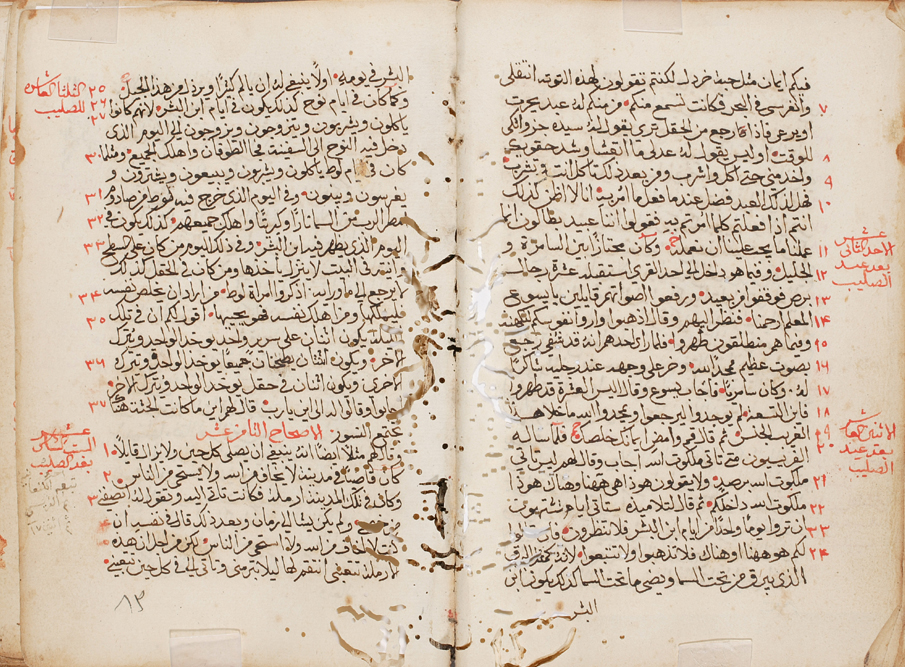 فيكم ايمان مثل حبة خردل لكنتم تقولون لهذه التوتة انتقلي
وانغرسي في البحر فكانت تسمع منكم ومن منكم له عبد يحرث
٧
او يرعي فاذا رجع من الحقل تري يقول له سيده جز واتكي
للوقت او ليس يقول له اعد لي ما اتعشا وشد حقويك
٨
واخدمني حتى اكل واشرب ومن بعد ذلك تاكل انت وتشرب
٩
هل لذلك العبد فضل عندما فعل ما امر به انا لا اظن كذلك
١٠
انتم اذا فعلتم كلما امرتم به فقولوا اننا عبيد بطالون انما
عملنا ما يجب علينا ان نعمل وكان مجتازا بين السامرة و
١١
عشر
الاحد الثاني
بعد عيد
الصليب
الجليل وفيما هو داخل الى احد القري استقبله عشرة رجال
١٢
برص فوقفوا من بعيد ورفعوا اصواتهم قايلين يا يسوع
١٣
المعلم ارحمنا فنظر اليهم وقال اذهبوا واروا نفوسكم للكهنة
١٤
وفيما هم منطلقون طهروا فلما راى احدهم انه قد شفي رجع
١٥
بصوت عظيم يمجد الله وخر على وجهه عند رجليه شاكرا
١٦
له وكان سامريا فاجاب يسوع وقال اليس العشرة قد طهروا
١٧
فاين التسعة لم يوجدوا ليرجعوا ويمجدوا الله ما خلا هذا
١٨
الغريب الجنس ثم قال قم وامض ايمانك خلصك فلما ساله
١٩
بعد عيد
الصليب
الفريسيون متى تاتي ملكوت الله اجاب وقال لهم ليس تاتي
٢٠
ملكوت الله برصد ولا يقولون هوذا هي ههنا وهناك هوذا
٢١
ملكوت الله داخلكم ثم قال لتلاميذه ستاتي ايام تشتهون
٢٢
ان تروا يوما واحدا من ايام ابن البشر فلا تنظرون فان قالوا
٢٣
لكم هو ههنا وهناك فلا تذهبوا ولا تتبعوا لانه كمثل البرق
٢٤
الذي يبرق من تحت السما ويضي ما تحت السما كذلك يكون ابن
البشر
البشر في يومه اولا ينبغي له ان يالم كثيرا ويرذل من هذا الجيل
٢٥
للصليب
وكما كان في ايام نوح كذلك يكون في ايام ابن البشر لانهم كانوا
٢٦
٢٧
ياكلون ويشربون ويتزوجون ويزوجون الى اليوم الذي
دخل فيه نوح الى السفينة فجا الطوفان واهلك الجميع ومثلما
كان في ايام لوط ياكلون ويشربون ويبيعون ويشترون و
يغرسون ويبنون وفي اليوم الذي خرج فيه لوط من صادوم
امطر الرب من السما نارا وكبريتا واهلك جميعهم كذلك يكون في
اليوم الذي يظهر فيه ابن البشر وفي ذلك اليوم من كان على السطح
وانيته في البيت لا ينزل ياخذها ومن كان في الحقل كذلك
لا يرجع الى ما وراه اذكروا امراة لوط من اراد ان يخلص نفسه
فليهلكها ومن اهلك نفسه فهو يحييها اقول لكم ان في تلك
٣٥
الليلة يكون اثنان على سرير واحد يوخذ الواحد ويترك
الاخر ويكون اثنتان تطحنان جميعا توخذ الواحدة وتترك
٣٦
الاخرى ويكون اثنان في حقل يوخذ الواحد ويترك الاخر
اجابوا وقالوا له الى اين يا رب قال لهم اين ما كانت الجثة هناك
٣٧
تجتمع النسور
الاصحاح الثامن عشر
وقال لهم مثلا ايضا انه ينبغي ان يصلى كل حين ولا يمل قايلا
١
بعد الصليب
كان قاض في مدينة لا يخاف من الله ولا يستحي من الناس
٢
وكانت في تلك المدينة ارملة فكانت تاتي اليه وتقول له انصفني
٣
ولم يكن يشا الى زمان وبعد ذلك قال في نفسه ان
٤
كنت لا اخاف من الله ولا استحي من الناس لكن من اجل ان هذه
٥
الارملة تتعبني انتقم لها ليلا تبرمني وتاتي الي في كل حين تتعبني
٨٣